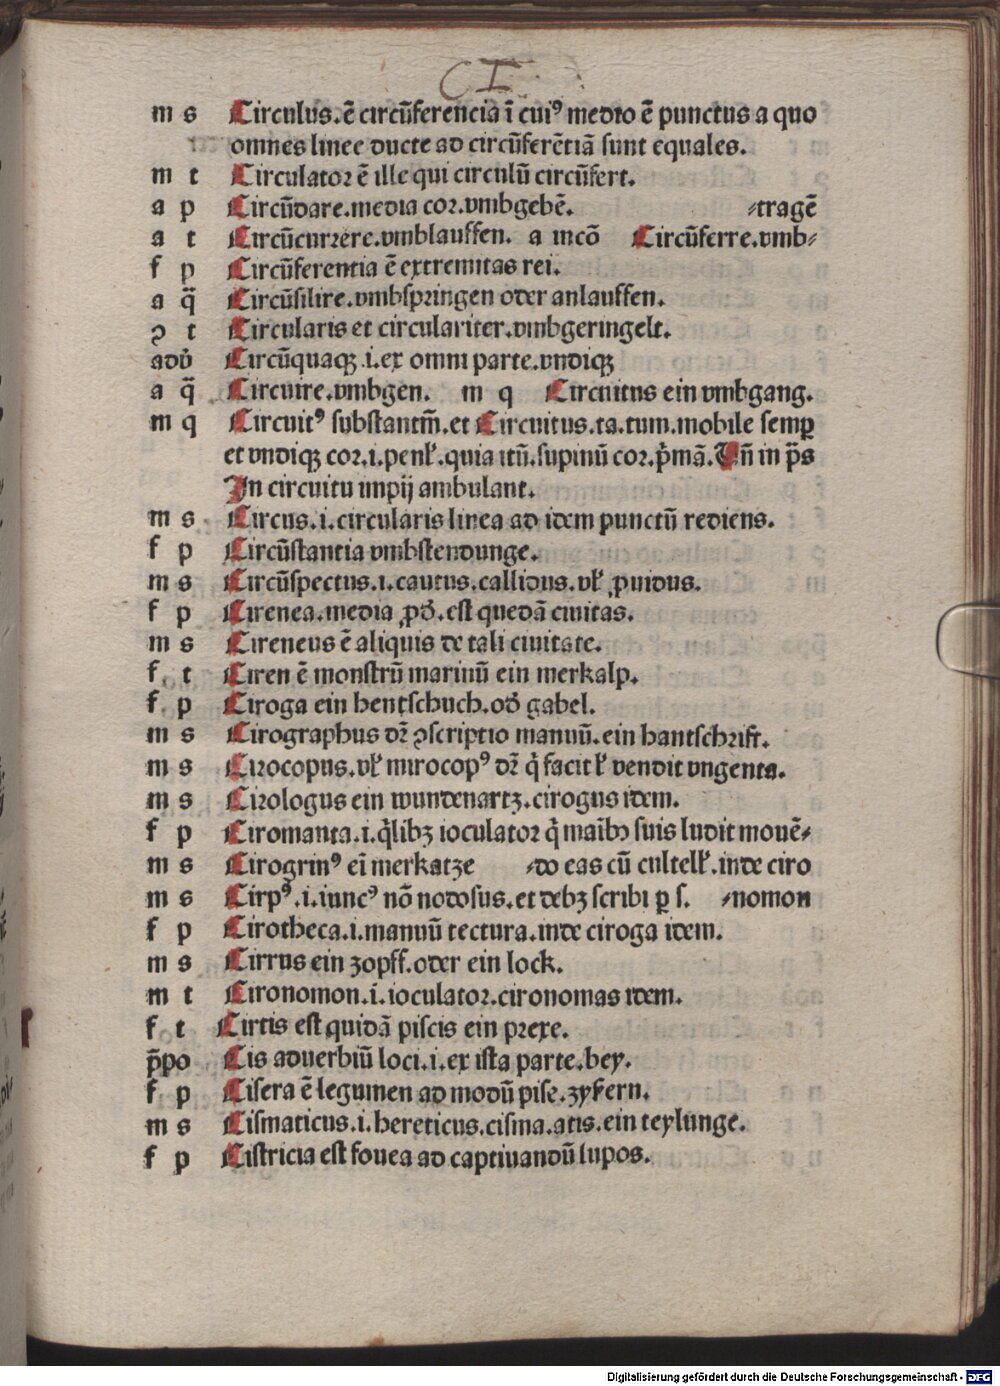 CI
m s Circulus.ē circūferencia ī cuiꝰ medio ē punctus a quo
omnes linee ducte ad circūferētiā sunt equales.
m t Circulator ē ille qui circulū circūfert.
a p Circūdare.media cor.vmbgebē. ⸗tragē
a t Circūcurrere.vmblauffen. a incō Circūferre.vmb⸗
f p Circūferentia ē extremitas rei.
a q̄ Circūsilire.vmbspringen oder anlauffen.
ꝯ t Circularis et circulariter.vmbgeringelt.
adv̓ Circūquaqꝫ.i.ex omni parte.vndiqꝫ
a q̄ Circuire.vmbgen. m q Circuitus ein vmbgang.
m q Circuitꝰ substantm̄.et Circuitus.ta.tum.mobile semꝑ
et vndiqꝫ cor.i.penł.quia itū.supinū cor.p̓mā.Vn̄ in p̄s
In circuitu impij ambulant.
m s Circus.i.circularis linea ad idem punctū rediens.
f p Circūstantia vmbstendunge.
m s Circūspectus.i.cautus.callidus.vł ꝓuidus.
f p Cirenea.media ꝓd̓.est quedā ciuitas.
m s Cireneus ē aliquis de tali ciuitate.
f t Ciren ē monstrū marinū ein merkalp.
f p Ciroga ein hentschuch.od̓ gabel.
m s Cirographus dr̄ ꝯscriptio manuū.ein hantschrift.
m s Cirocopus.vł mirocopꝰ dr̄ q̓ facit ł vendit vngenta.
m s Cirologus ein wundenartz.cirogus idem.
f p Ciromanta.i.q̓libꝫ ioculator q̓ maībꝯ suis ludit mouē⸗
m s Cirogrinꝰ eī merkatze ⸗do eas cū cultelł.inde ciro
m s Cirpꝰ.i.iuncꝰ nō nodosus.et debꝫ scribi ꝑ s. ⸗nomon
f p Cirotheca.i.manuū tectura.inde ciroga idem.
m s Cirrus ein zopff.oder ein lock.
m t Cironomon.i.ioculator.cironomas idem.
f t Cirtis est quidā piscis ein prexe.
p̄po Cis aduerbiū loci.i.ex ista parte.bey.
f p Cisera ē legumen ad modū pise.zykern.
m s Cismaticus.i.hereticus.cisma.atis.ein teylunge.
f p Cistricia est fouea ad captiuandū lupos.
Digitalisierung gefördert durch die Deutsche Forschungsgemeinschaft - DFG